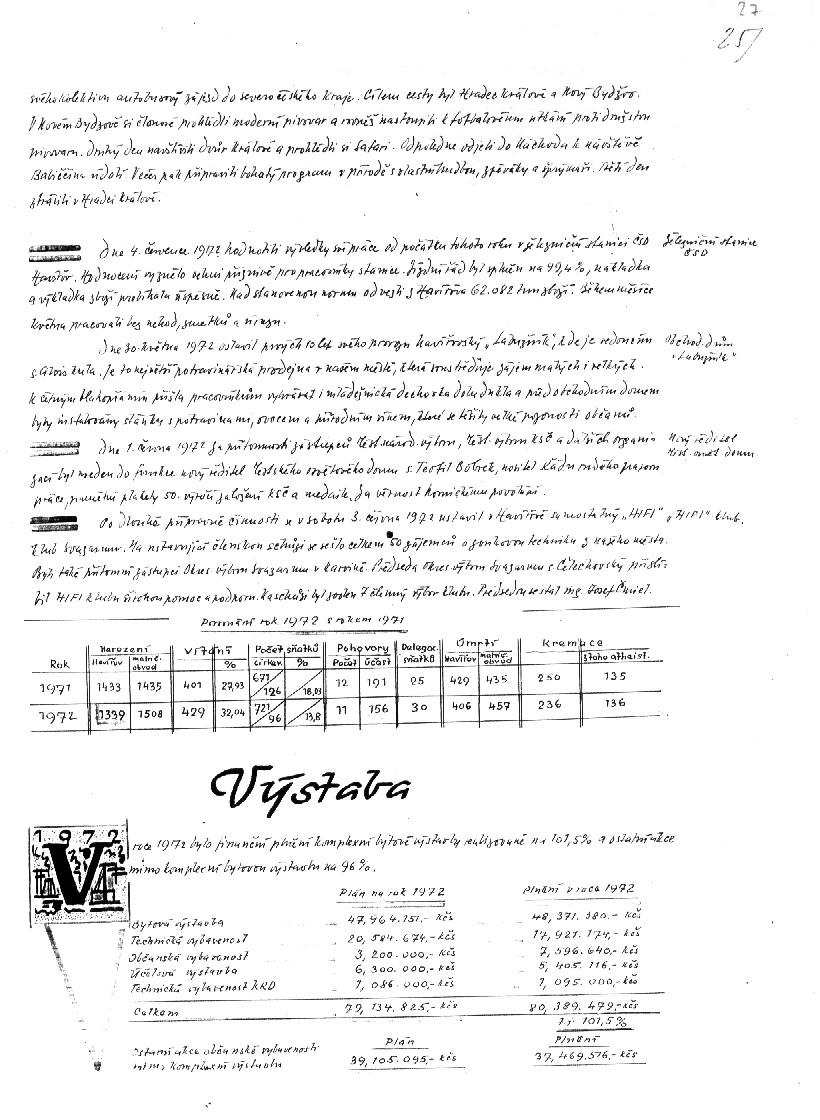 27
25/
svého kolektivu autobusový zájezd do severočeského kraje. Cílem cesty byl Hradec Králové a Nový Bydžov.
V Novém Bydžově si členové prohlédli moderní pivovar a rovněž nastoupili k fotbalovému utkání proti družstvu
pivovaru. Druhý den navštívili Dvůr Králové a prohlédli si Safari. Odpoledne odjeli do Náchoda k návštěvě
Babiččina údolí. Večer pak připravili bohatý program v přírodě s vlastní hudbou, zpěváky a šprýmaři. Třetí den
strávili v Hradci Králové.
Dne 4. července 1972 hodnotili výsledky své práce od počátku tohoto roku v železniční stanici ČSD
Železniční stanice
ČSD
Havířov. Hodnocení vyznělo velmi příznivě pro pracovníky stanice. Jízdní řád byl splněn na 99,4%, nakládka
a výkladka zboží probíhala úspěšně. Nad stanovenou normu odvezli z Havířova 62.082 tun zboží. Během měsíce
května pracovali bez nehod, zmetků a úrazu.
Dne 30. května 1972 oslavil prvých 10 let svého provozu havířovský „Labužník", kde je vedoucím
Obchod. dům
„Labužník"
s. Alois Kula. Je to největší potravinářská prodejna v našem městě, která soustřeďuje zájem malých i velkých.
K četným blahopřáním přišla pracovníkům vyhrávat i mládežnická dechovka dolu Dukla a před obchodním domem
byly instalovány stánky s potravinami, ovocem a přírodním vínem, které se těšily velké pozornosti občanů.
Dne 1. června 1972 za přítomnosti zástupců Měst. národ. výboru, Měst. výboru KSČ a dalších organi-
Nový ředitel
Měst. osvět. domu
zací byl uveden do funkce nový ředitel Městského osvětového domu s. Teofil Bobrek, nositel Řádu rudého praporu
práce, pamětní plakety 50. výročí založení KSČ a medaile Za věrnost hornickému povolání.
Po dlouhé přípravné činnosti se v sobotu 3. června 1972 ustavil v Havířově samostatný „HIFI"
„HIFI" klub.
klub Svazarmu. Na ustavující členskou schůzi se sešlo celkem 50 zájemců o zvukovou techniku z našeho města.
Byli také přítomni zástupci Okres. výboru Svazarmu v Karviné. Předseda Okres. výboru Svazarmu s. Čelechovský příslí-
bil HIFI klubu širokou pomoc a podporu. Na schůzi byl zvolen 7 členný výbor klubu. Předsedou se stal ing. Josef Čmiel.
Porovnání rok 1972 s rokem 1971
Rok Narození Vítání Počet sňatků Pohovory Delegac. sňatků Úmrtí Kremace
Havířov matrič. obvod % církev. % Počet účast Havířov matrič. obvod z toho atheist.
1971 1433 1435 401 27,93 671/126 18,03 12 191 25 429 435 250 135
1972 1339 1508 429 32,04 721/96 13,8 11 156 30 406 457 236 136
Výstaba
1972
V roce 1972 bylo finanční plnění komplexní bytové výstavby realizované na 101,5% a ostatní akce
mimo komplexní bytovou výstavbu na 96%.
Plán na rok 1972 Plnění v roce 1972
Bytová výstavba 47,964.151,- Kčs 48,371.380.- Kčs
Technická vybavenost 20,584.674,- Kčs 17,921.174,- Kčs
Občanská vybavenost 3,200.000,- Kčs 7,596.640,- Kčs
Účelová výstavba 6,300.000,- Kčs 5,405.116,- Kčs
Technická vybavenost KRD 1,086.000,- Kčs 1,095.000,- Kčs
Celkem 79,134.825,- Kčs 80,389.479,- Kčs
t.j. 101,5%
Plán Plnění
Ostatní akce občanské vybavenosti
mimo komplexní výstavbu 39,105.095,- Kčs 37,469.576,- Kčs